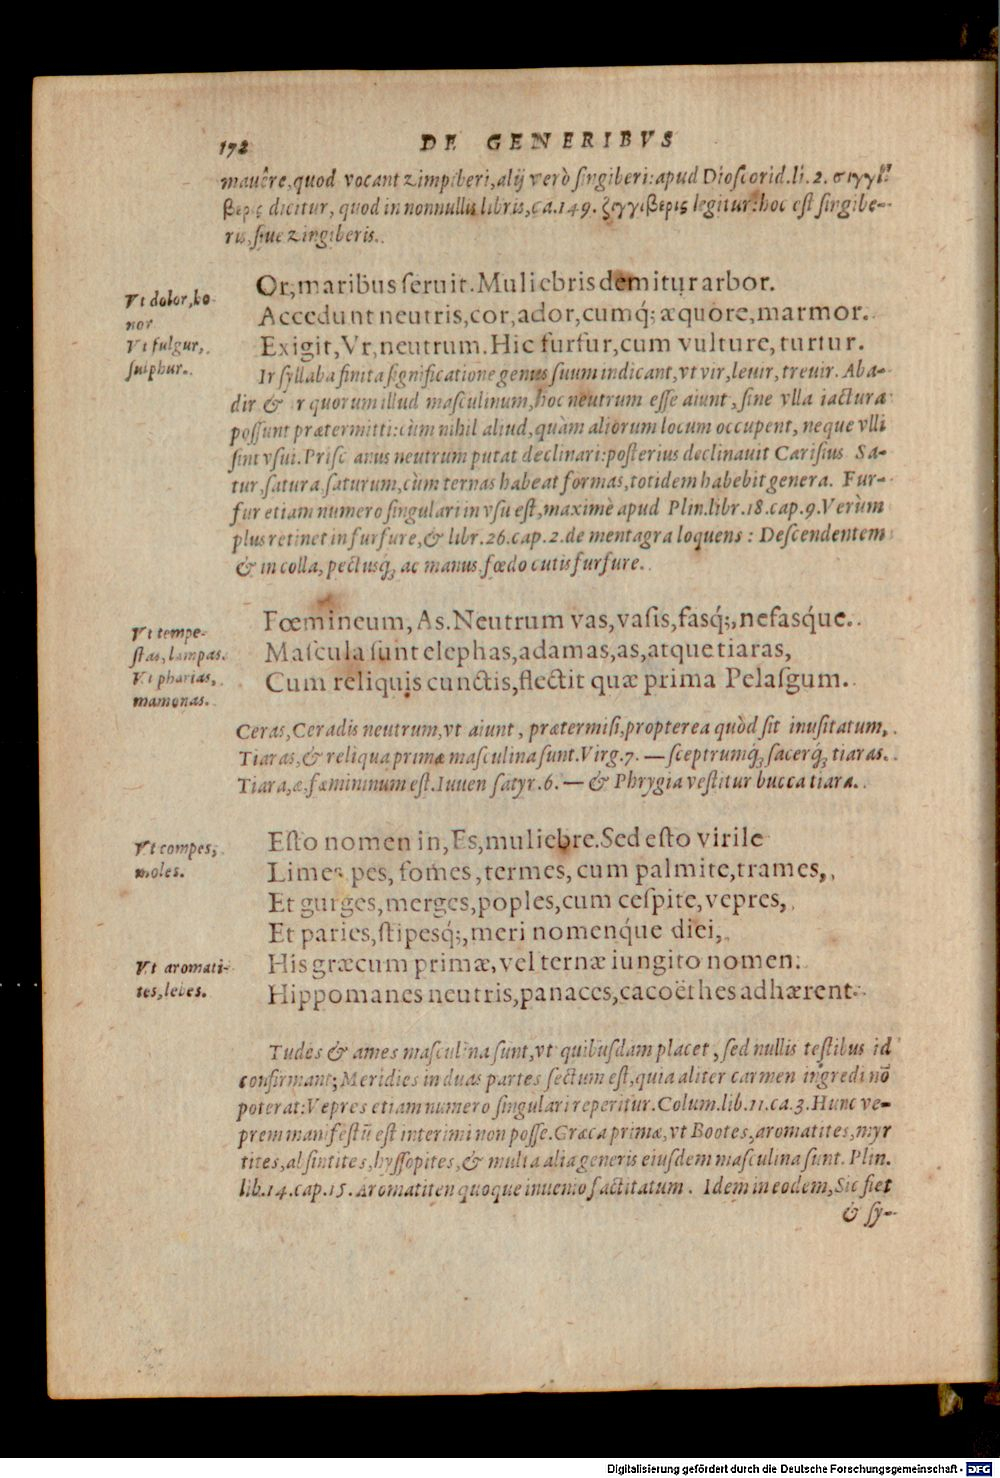 172 DE GENERIBVS
mauêre, quod vocant zimpiberi, alij verò singiberi: apud Dioscorid. li. 2. σιγγί-
βερις dicitur, quod in nonnullis libris, ca. 149. ζιγγιβερις legitur: hoc est singibe-
ris, siue zingiberis.
Vt dolor, ho
nor
Vt fulgur,
sulphur.
Or, maribus seruit. Muliebris demitur arbor.
Accedunt neutris, cor, ador, cumq́; æquore, marmor.
Exigit, Vr, neutrum. Hic furfur, cum vulture, turtur.
Ir syllaba finita significatione genus suum indicant, vt vir, leuir, treuir. Aba-
dir & Ir quorum illud masculinum, hoc neutrum esse aiunt, sine vlla iactura
possunt prætermitti: cùm nihil aliud, quàm aliorum locum occupent, neque vlli
sint vsui. Priscianus neutrum putat declinari: posterius declinauit Carisius Sa-
tur, satura, saturum, cùm ternas habeat formas, totidem habebit genera. Fur-
fur etiam numero singulari in vsu est, maximè apud Plin. libr. 18. cap. 9. Verùm
plus retinet in furfure, & libr. 26. cap. 2. de mentagra loquens : Descendentem
& in colla, pectusq́; ac manus, fœdo cutis furfure.
Vt tempe-
stas, lampas.
Vt pharias,
mamonas.
Fœmineum, As. Neutrum vas, vasis, fasq́;, nefasq́ue.
Mascula sunt elephas, adamas, as, atque tiaras,
Cum reliquis cunctis, flectit quæ prima Pelasgum.
Ceras, Ceradis neutrum, vt aiunt, prætermisi, propterea quòd sit inusitatum,
Tiaras, & reliqua primæ masculina sunt. Virg. 7. — sceptrumq́; sacerq́; tiaras.
Tiara, æ, fœmininum est. Iuuen satyr. 6. — & Phrygia vestitur bucca tiara.
Vt compes,
moles.
Esto nomen in, Es, muliebre. Sed esto virile
Limes pes, fomes, termes, cum palmite, trames,
Et gurges, merges, poples, cum cespite, vepres,
Et paries, stipesq́;, meri nomenq́ue diei,
Vt aromati-
tes, lebes.
His græcum primæ, vel ternæ iungito nomen.
Hippomanes neutris, panaces, cacoëthes adhærent.
Tudes & ames masculina sunt, vt quibusdam placet, sed nullis testibus id
confirmant; Meridies in duas partes sectum est, quia aliter carmen ingredi nō
poterat: Vepres etiam numero singulari reperitur. Colum. lib. 11. ca. 3. Hunc ve-
prem manifestū est interimi non posse. Græca primæ, vt Bootes, aromatites, myr
tites, absintites, hyssopites, & multa alia generis eiusdem masculina sunt. Plin.
lib. 14. cap. 15. Aromatiten quoque inuenio factitatum. Idem in eodem, Sic fiet
& sy-
Digitalisierung gefördert durch die Deutsche Forschungsgemeinschaft - DFG